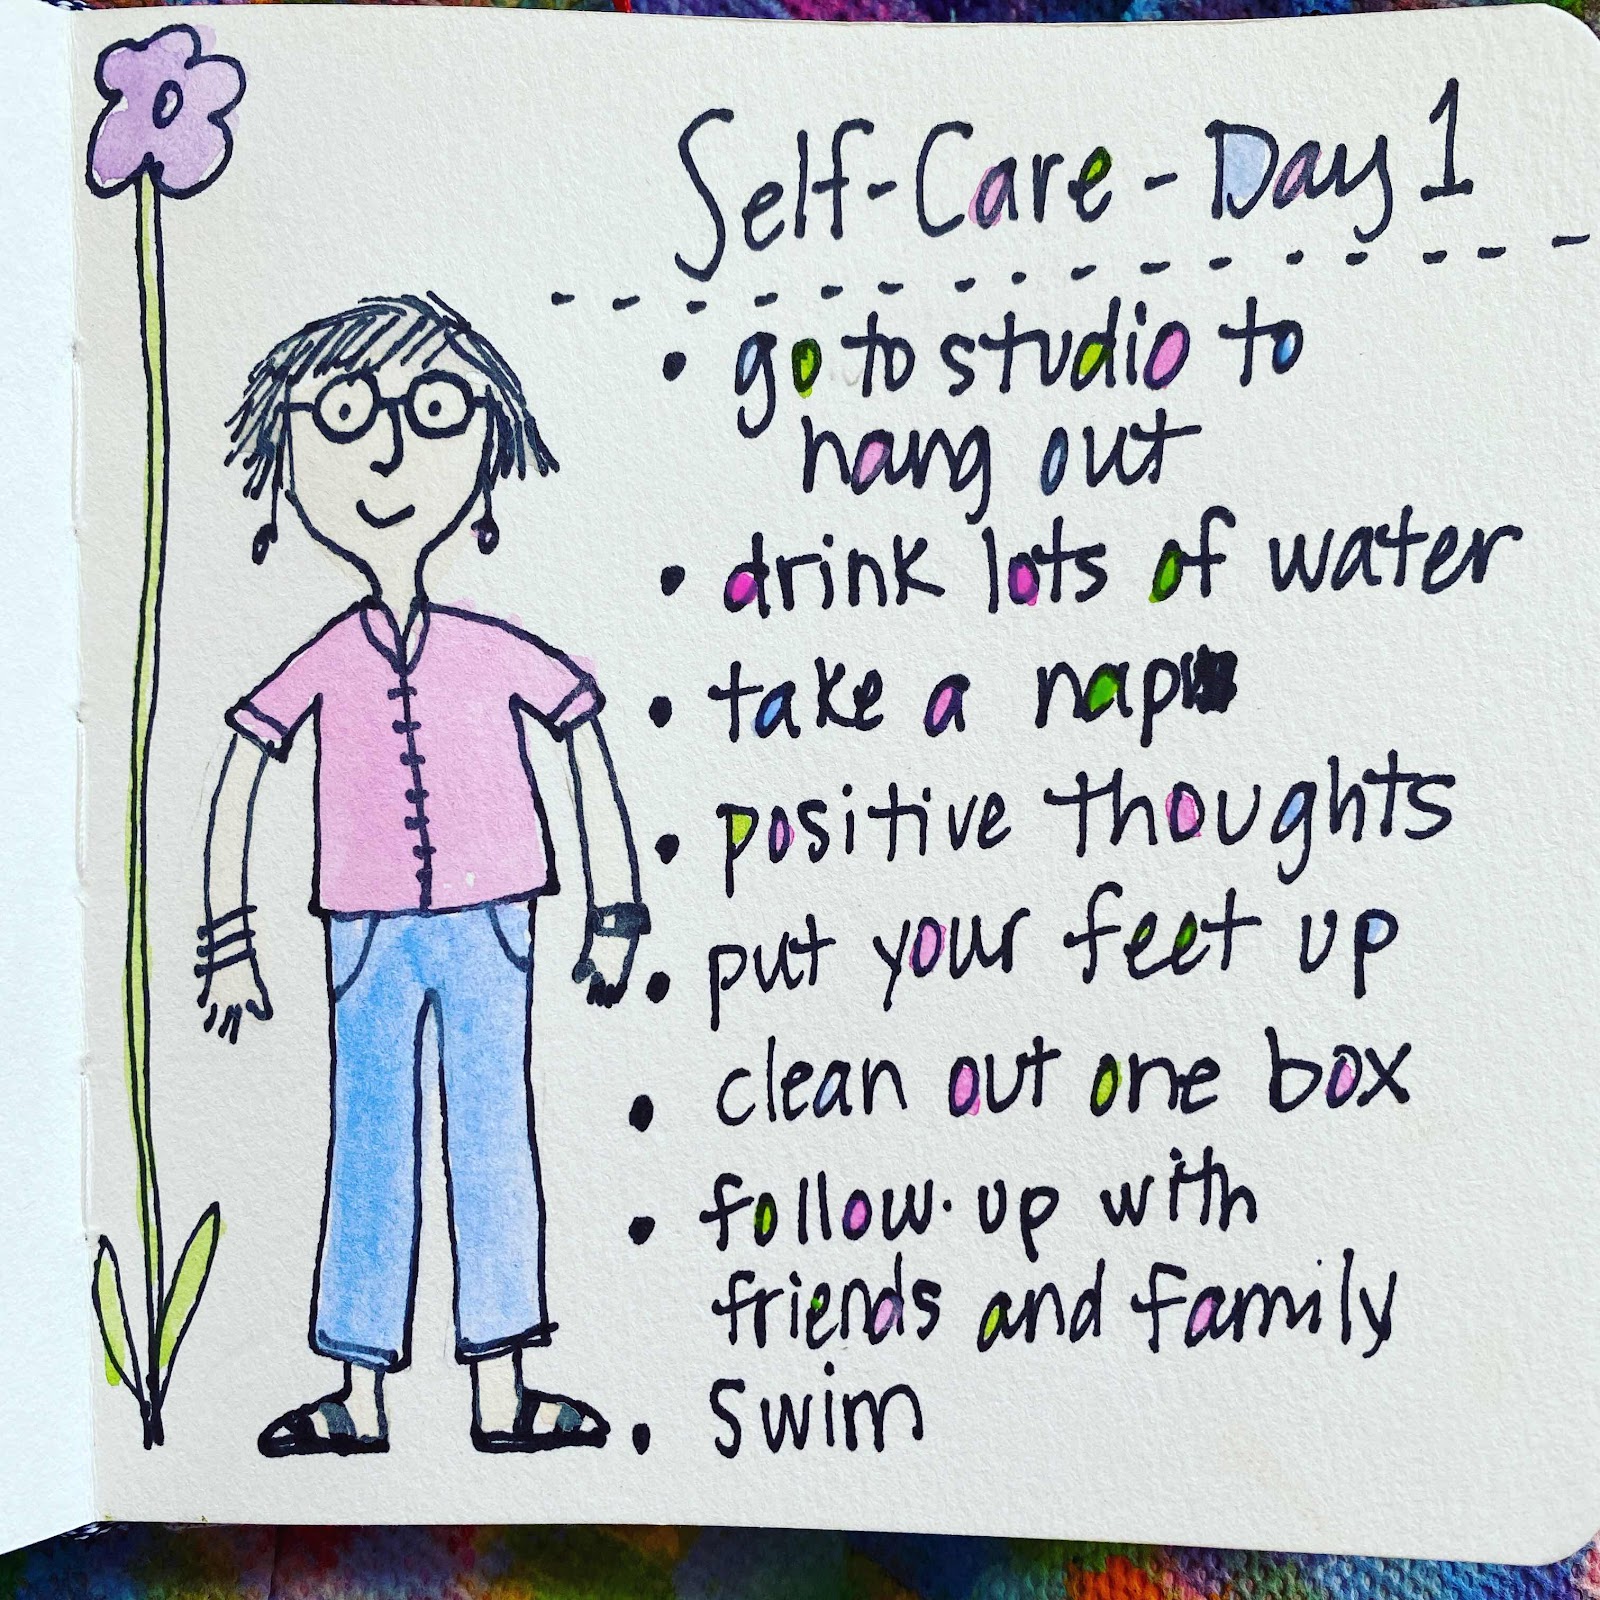 Self-Care-Day 1
• go to studio to
hang out
• drink lots of water
• take a nap
• positive thoughts
• put your feet up
• clean out one box
• follow-up with
friends and family
• swim